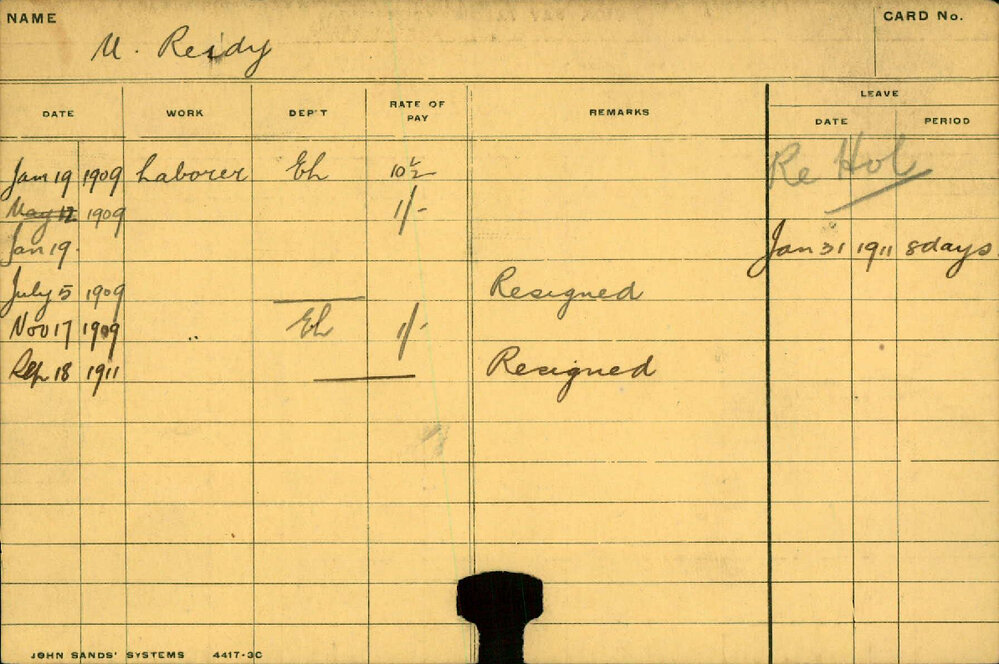 NAME CARD No.
M. Reidy
DATE WORK DEP'T RATE OF PAY REMARKS LEAVE DATE PERIOD
Jan 19 1909 Laborer Eh 10½ Re Hol
May 12 1909 1/-
Jan 19. Jan 31 1911 8days
July 5 1909 Resigned
Nov 17 1909 .. Eh 1/-
Sep 18 1911 Resigned
JOHN SANDS' SYSTEMS 4417-3C